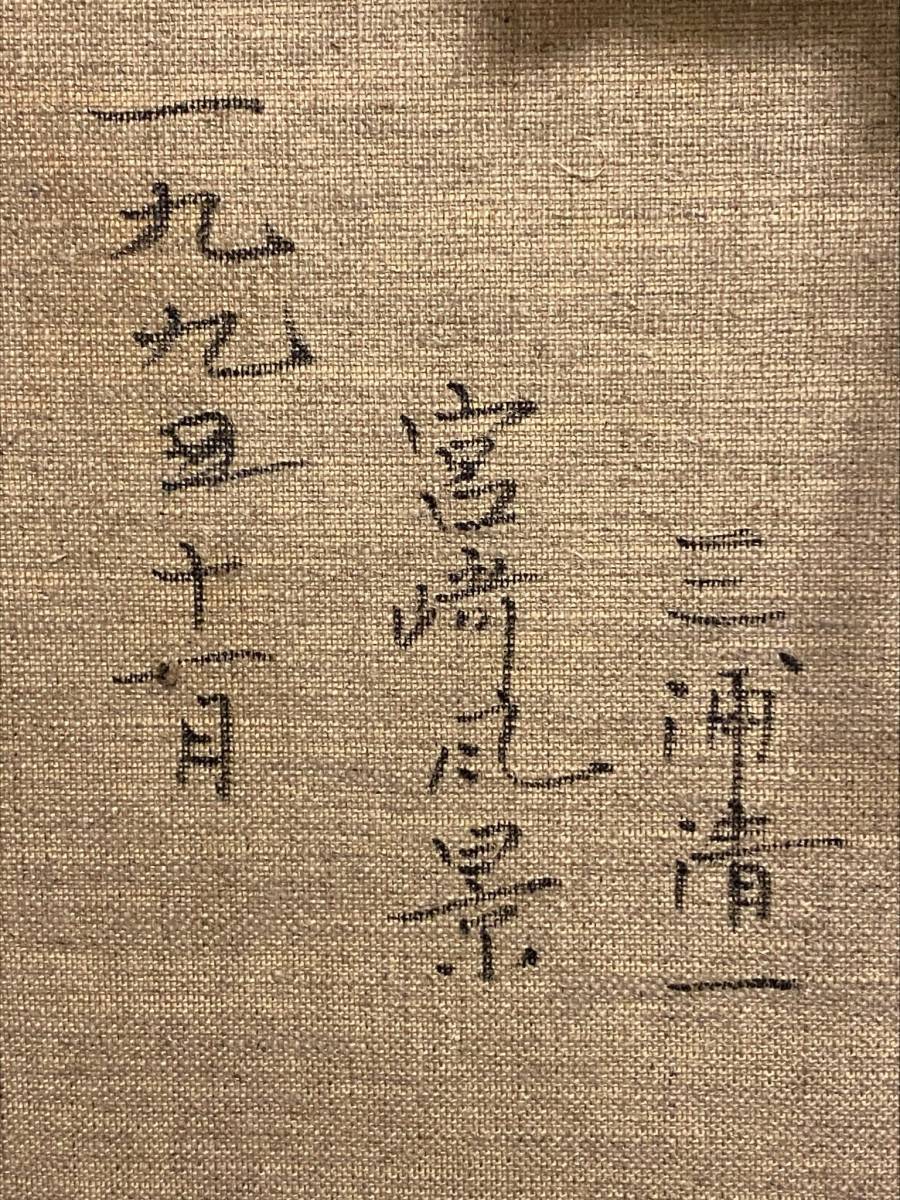 三浦清一
宮崎風景
一九九五十一月